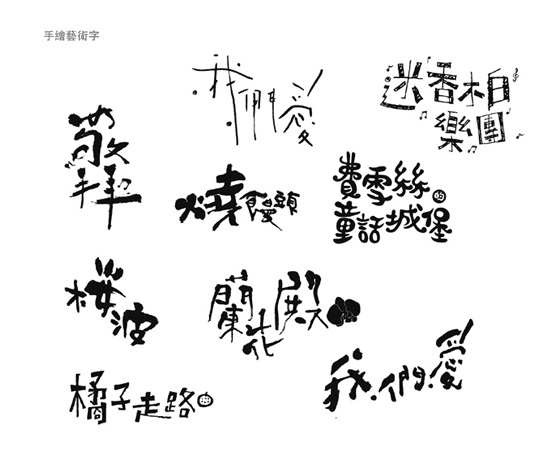 手繪藝術字
我們愛
迷香相
樂團
敬拜
燒饅頭
費雪絲的
童話城堡
櫻波
蘭花殿
我們愛
橘子走路